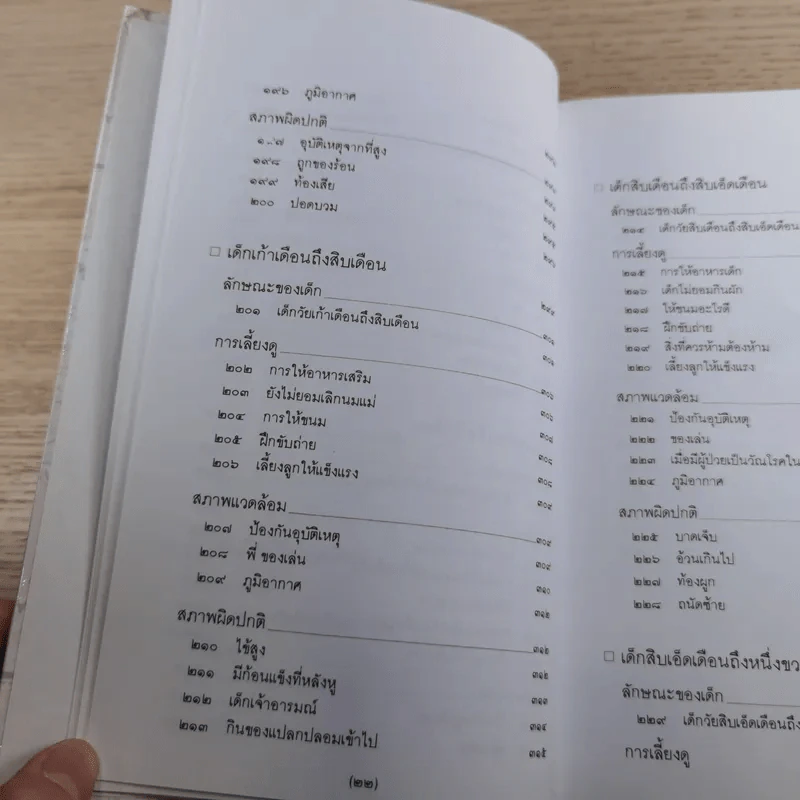 ๑๙๖ ภูมิอากาศ
สภาพผิดปกติ
๑๙๗ อุบัติเหตุจากที่สูง
๑๙๘ ถูกของร้อน
๑๙๙ ท้องเสีย
๒๐๐ ปอดบวม
□ เด็กเก้าเดือนถึงสิบเดือน
ลักษณะของเด็ก ๒๙๙
๒๐๑ เด็กวัยเก้าเดือนถึงสิบเดือน ๓๐๑
การเลี้ยงดู ๓๐๖
๒๐๒ การให้อาหารเสริม ๓๐๖
๒๐๓ ยังไม่ยอมเลิกนมแม่ ๓๐๖
๒๐๔ การให้ขนม ๓๐๘
๒๐๕ ฝึกขับถ่าย ๓๐๘
๒๐๖ เลี้ยงลูกให้แข็งแรง ๓๐๘
สภาพแวดล้อม ๓๐๙
๒๐๗ ป้องกันอุบัติเหตุ ๓๐๙
๒๐๘ พี่ ของเล่น ๓๐๙
๒๐๙ ภูมิอากาศ ๓๑๐
สภาพผิดปกติ ๓๑๒
๒๑๐ ไข้สูง ๓๑๒
๒๑๑ มีก้อนแข็งที่หลังหู ๓๑๒
๒๑๒ เด็กเจ้าอารมณ์ ๓๑๓
๒๑๓ กินของแปลกปลอมเข้าไป ๓๑๔
๓๑๕
(๒๒)
□ เด็กสิบเดือนถึงสิบเอ็ดเดือน
ลักษณะของเด็ก
๒๑๔ เด็กวัยสิบเดือนถึงสิบเอ็ดเดือน
การเลี้ยงดู
๒๑๕ การให้อาหารเด็ก
๒๑๖ เด็กไม่ยอมกินผัก
๒๑๗ ให้ขนมอะไรดี
๒๑๘ ฝึกขับถ่าย
๒๑๙ สิ่งที่ควรห้ามต้องห้าม
๒๒๐ เลี้ยงลูกให้แข็งแรง
สภาพแวดล้อม
๒๒๑ ป้องกันอุบัติเหตุ
๒๒๒ ของเล่น
๒๒๓ เมื่อมีผู้ป่วยเป็นวัณโรคใน
๒๒๔ ภูมิอากาศ
สภาพผิดปกติ
๒๒๕ บาดเจ็บ
๒๒๖ อ้วนเกินไป
๒๒๗ ท้องผูก
๒๒๘ ถนัดซ้าย
□ เด็กสิบเอ็ดเดือนถึงหนึ่งขว
ลักษณะของเด็ก
๒๒๙ เด็กวัยสิบเอ็ดเดือนถึง
การเลี้ยงดู